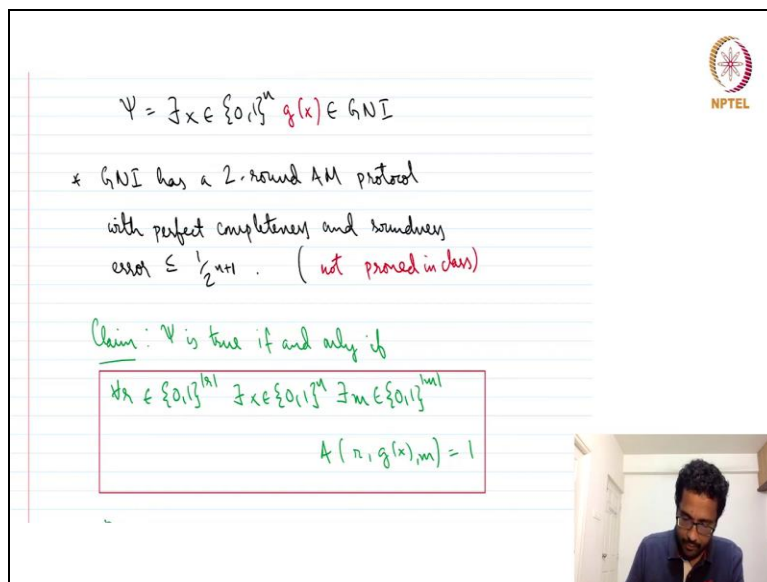 Ψ = ∃x ∈ {0,1}^n g(x) ∈ GNI
NPTEL
* GNI has a 2-round AM protocol
with perfect completeness and soundness
error ≤ 1/2^{n+1}. (not proved in class)
Claim: Ψ is true if and only if
∀r ∈ {0,1}^{|r|} ∃x ∈ {0,1}^n ∃m ∈ {0,1}^{|m|}
A(r, g(x), m) = 1